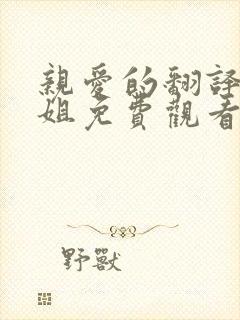 親愛的翻譯
姐免費觀看
野獸